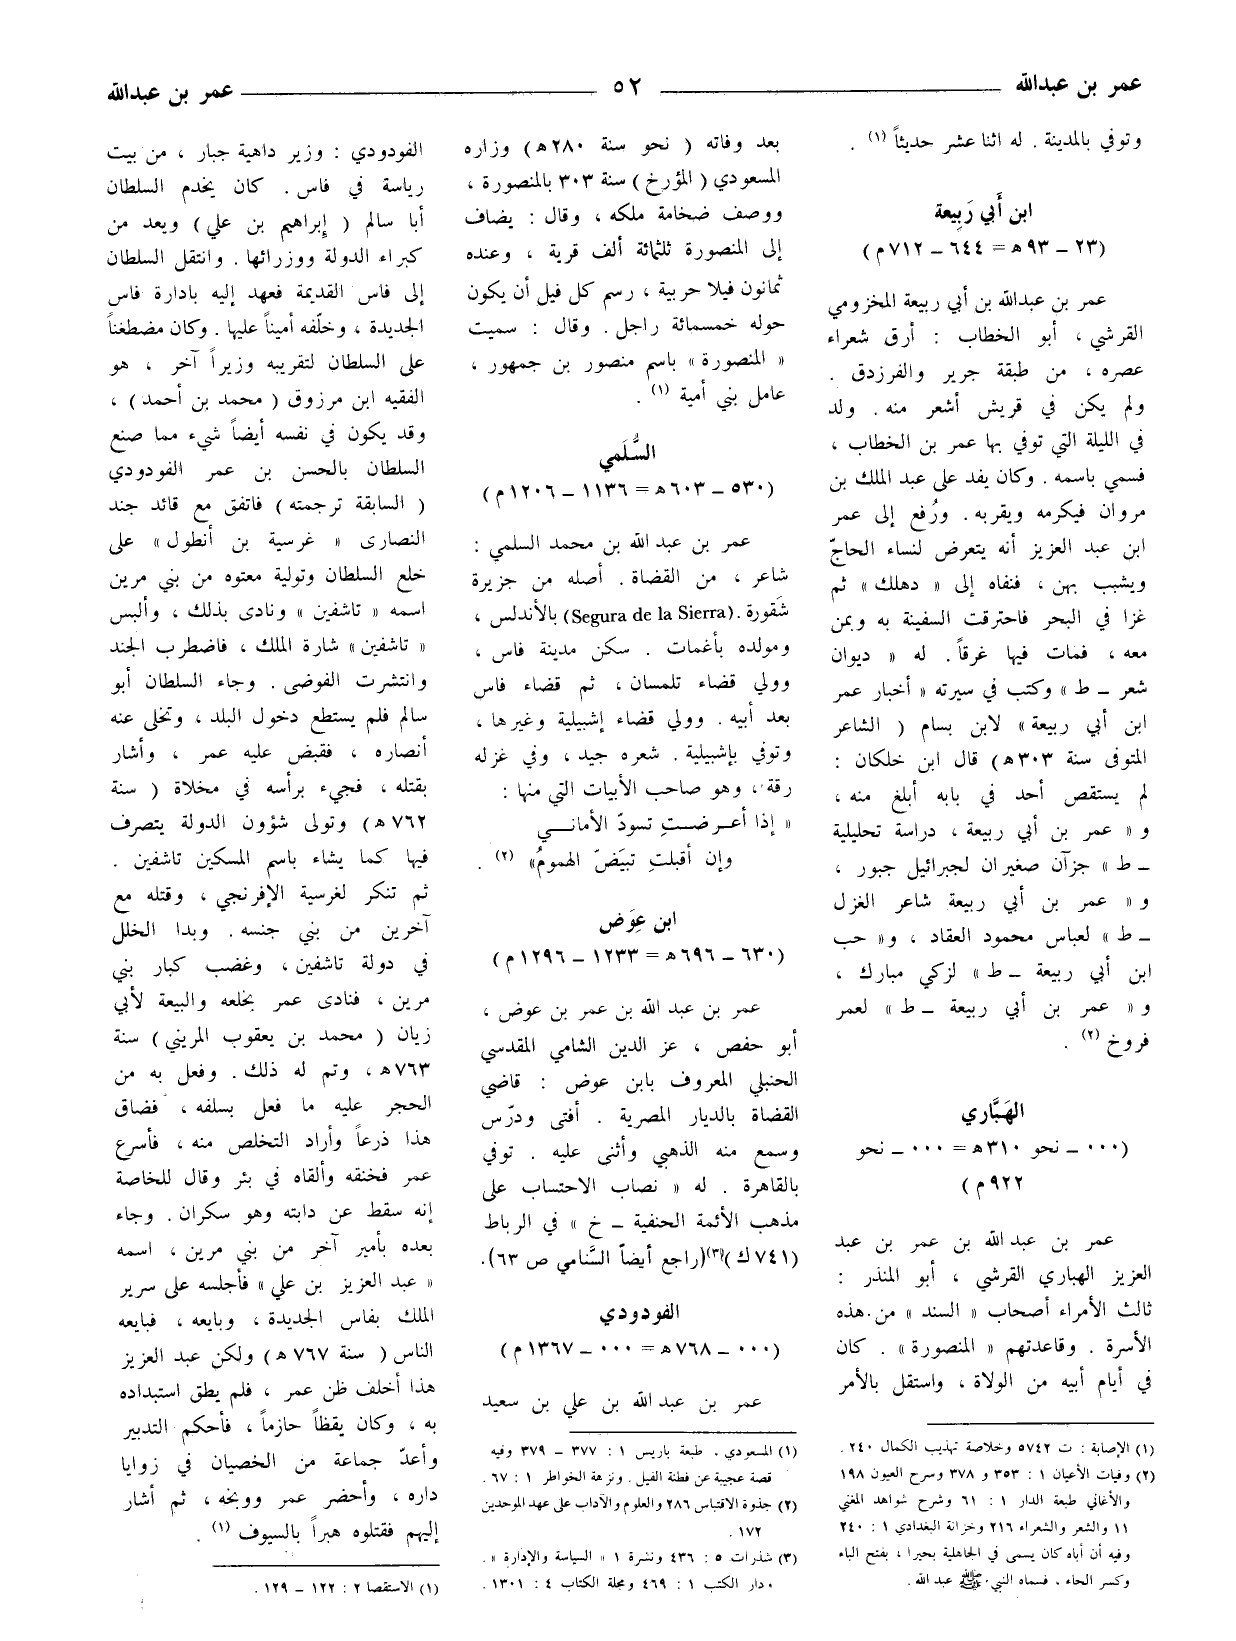 عمر بن عبدالله
٥٢
عمر بن عبدالله
وتوفي بالمدينة . له اثنا عشر حديثاً (١) .
ابن أَبي رَبِيعة
(٢٣ ــ ٩٣ هـ = ٦٤٤ ــ ٧١٢ م)
عمر بن عبدالله بن أبي ربيعة المخزومي
القرشي ، أبو الخطاب : أرق شعراء
عصره ، من طبقة جرير والفرزدق .
ولم يكن في قريش أشعر منه . ولد
في الليلة التي توفي بها عمر بن الخطاب ،
فسمي باسمه . وكان يفد على عبد الملك بن
مروان فيكرمه ويقربه . ورُفع إلى عمر
ابن عبد العزيز أنه يتعرض لنساء الحاجّ
ويشبب بهن ، فنفاه إلى « دهلك » ثم
غزا في البحر فاحترقت السفينة به وبمن
معه ، فمات فيها غرقاً . له « ديوان
شعر ــ ط » وكتب في سيرته « أخبار عمر
ابن أبي ربيعة » لابن بسام ( الشاعر
المتوفى سنة ٣٠٣ هـ) قال ابن خلكان :
لم يستقص أحد في بابه أبلغ منه ،
و « عمر بن أبي ربيعة ، دراسة تحليلية
ــ ط » جزآن صغيران لجبرائيل جبور ،
و « عمر بن أبي ربيعة شاعر الغزل
ــ ط » لعباس محمود العقاد ، و« حب
ابن أبي ربيعة ــ ط » لزكي مبارك ،
و « عمر بن أبي ربيعة ــ ط » لعمر
فروخ (٢) .
الهَبَّاري
(٠٠٠ ــ نحو ٣١٠ هـ = ٠٠٠ ــ نحو
٩٢٢ م )
عمر بن عبد الله بن عمر بن عبد
العزيز الهباري القرشي ، أبو المنذر :
ثالث الأمراء أصحاب « السند » من هذه
الأسرة . وقاعدتهم « المنصورة » . كان
في أيام أبيه من الولاة ، واستقل بالأمر
(١) الإصابة : ت ٥٧٤٢ وخلاصة تهذيب الكمال ٢٤٠ .
(٢) وفيات الأعيان ١ : ٣٥٣ و ٣٧٨ وسرح العيون ١٩٨
والأغاني طبعة الدار ١ : ٦١ وشرح شواهد المغني
١١ والشعر والشعراء ٢١٦ وخزانة البغدادي ١ : ٢٤٠
وفيه أن أباه كان يسمى في الجاهلية بحيرا ، بفتح الباء
وكسر الحاء ، فسماه النبي ﷺ عبد الله .
بعد وفاته ( نحو سنة ٢٨٠ هـ) وزاره
المسعودي ( المؤرخ ) سنة ٣٠٣ بالمنصورة ،
ووصف ضخامة ملكه ، وقال : يضاف
إلى المنصورة ثلثمائة ألف قرية ، وعنده
ثمانون فيلا حربية ، رسم كل فيل أن يكون
حوله خمسمائة راجل . وقال : سميت
« المنصورة » باسم منصور بن جمهور ،
عامل بني أمية (١) .
السُّلَمي
(٥٣٠ ــ ٦٠٣ هـ = ١١٣٦ ــ ١٢٠٦ م )
عمر بن عبد الله بن محمد السلمي :
شاعر ، من القضاة . أصله من جزيرة
شَقُورة .(Segura de la Sierra) بالأندلس ،
ومولده بأغمات . سكن مدينة فاس ،
وولي قضاء تلمسان ، ثم قضاء فاس
بعد أبيه . وولي قضاء إشبيلية وغيرها ،
وتوفي بإشبيلية . شعره جيد ، وفي غزله
رقة ، وهو صاحب الأبيات التي منها :
« إذا أعـرضـتِ تسودّ الأمانـي
وإن أقبلتِ تبيَضّ الهمومُ» (٢) .
ابن عِوَض
(٦٣٠ ــ ٦٩٦ هـ = ١٢٣٣ ــ ١٢٩٦ م )
عمر بن عبد الله بن عمر بن عوض ،
أبو حفص ، عز الدين الشامي المقدسي
الحنبلي المعروف بابن عوض : قاضي
القضاة بالديار المصرية . أفتى ودرّس
وسمع منه الذهبي وأثنى عليه . توفي
بالقاهرة . له « نصاب الاحتساب على
مذهب الأئمة الحنفية ــ خ » في الرباط
(٧٤١ ك )(٣)(راجع أيضاً السَّنامي ص ٦٣).
الفودودي
(٠٠٠ ــ ٧٦٨ هـ = ٠٠٠ ــ ١٣٦٧ م )
عمر بن عبد الله بن علي بن سعيد
(١) المسعودي . طبعة باريس ١ : ٣٧٧ ــ ٣٧٩ وفيه
قصة عجيبة عن فطنة الفيل . ونزهة الخواطر ١ : ٦٧ .
(٢) جذوة الاقتباس ٢٨٦ والعلوم والآداب على عهد الموحدين
١٧٢ .
(٣) شذرات ٥ : ٤٣٦ ونشرة ١ « السياسة والإدارة » .
دار الكتب ١ : ٤٦٩ ومجلة الكتاب ٤ : ١٣٠١ .
الفودودي : وزير داهية جبار ، من بيت
رياسة في فاس . كان يخدم السلطان
أبا سالم ( إبراهيم بن علي ) ويعد من
كبراء الدولة ووزرائها . وانتقل السلطان
إلى فاس القديمة فعهد إليه بادارة فاس
الجديدة ، وخلّفه أميناً عليها . وكان مضطغناً
على السلطان لتقريبه وزيراً آخر ، هو
الفقيه ابن مرزوق ( محمد بن أحمد ) ،
وقد يكون في نفسه أيضاً شيء مما صنع
السلطان بالحسن بن عمر الفودودي
( السابقة ترجمته ) فاتفق مع قائد جند
النصارى « غرسية بن أنطول » على
خلع السلطان وتولية معتوه من بني مرين
اسمه « تاشفين » ونادى بذلك ، وألبس
« تاشفين » شارة الملك ، فاضطرب الجند
وانتشرت الفوضى . وجاء السلطان أبو
سالم فلم يستطع دخول البلد ، وتخلى عنه
أنصاره ، فقبض عليه عمر ، وأشار
بقتله ، فجيء برأسه في مخلاة ( سنة
٧٦٢ هـ) وتولى شؤون الدولة يتصرف
فيها كما يشاء باسم المسكين تاشفين .
ثم تنكر لغرسية الإفرنجي ، وقتله مع
آخرين من بني جنسه . وبدا الخلل
في دولة تاشفين ، وغضب كبار بني
مرين ، فنادى عمر بخلعه والبيعة لأبي
زيان ( محمد بن يعقوب المريني ) سنة
٧٦٣ هـ ، وتم له ذلك . وفعل به من
الحجر عليه ما فعل بسلفه ، فضاق
هذا ذرعاً وأراد التخلص منه ، فأسرع
عمر فخنقه وألقاه في بئر وقال للخاصة
إنه سقط عن دابته وهو سكران . وجاء
بعده بأمير آخر من بني مرين ، اسمه
« عبد العزيز بن علي » فأجلسه على سرير
الملك بفاس الجديدة ، وبايعه ، فبايعه
الناس ( سنة ٧٦٧ هـ ) ولكن عبد العزيز
هذا أخلف ظن عمر ، فلم يطق استبداده
به ، وكان يقظاً حازماً ، فأحكم التدبير
وأعدّ جماعة من الخصيان في زوايا
داره ، وأحضر عمر ووبخه ، ثم أشار
إليهم فقتلوه هبراً بالسيوف (١) .
(١) الاستقصا ٢ : ١٢٢ ــ ١٢٩ .